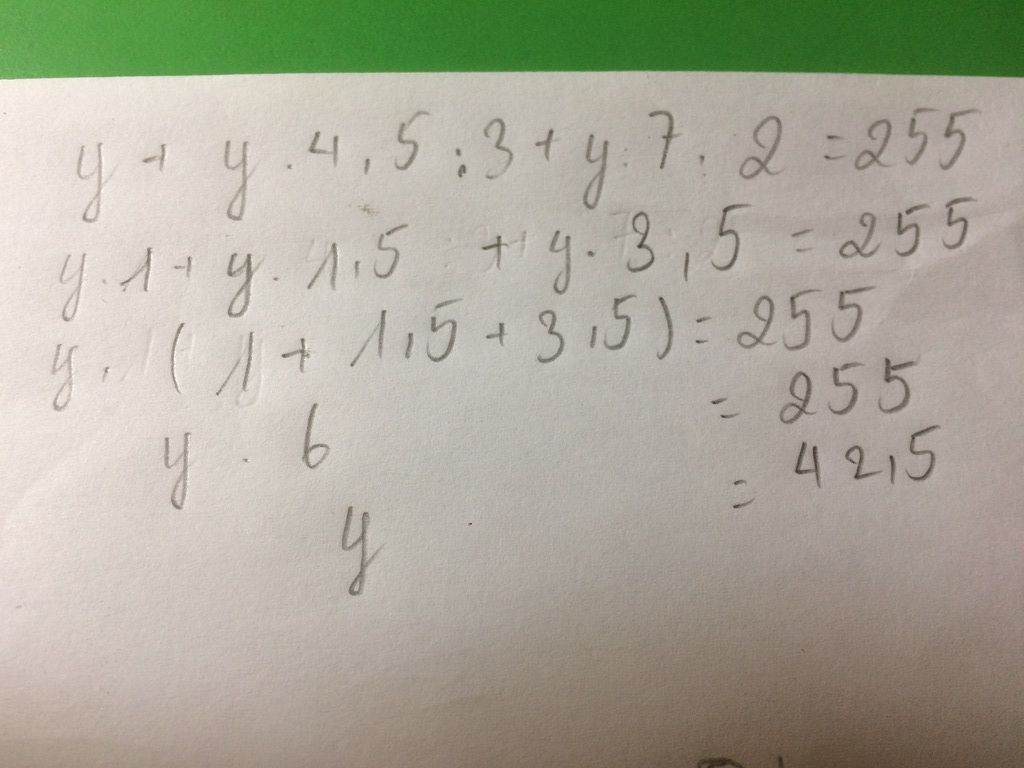 y + y . 4,5 : 3 + y : 7 . 2 = 255
y . 1 + y . 1,5 + y . 3,5 = 255
y . ( 1 + 1,5 + 3,5 ) = 255
y . 6 = 255
y = 42,5